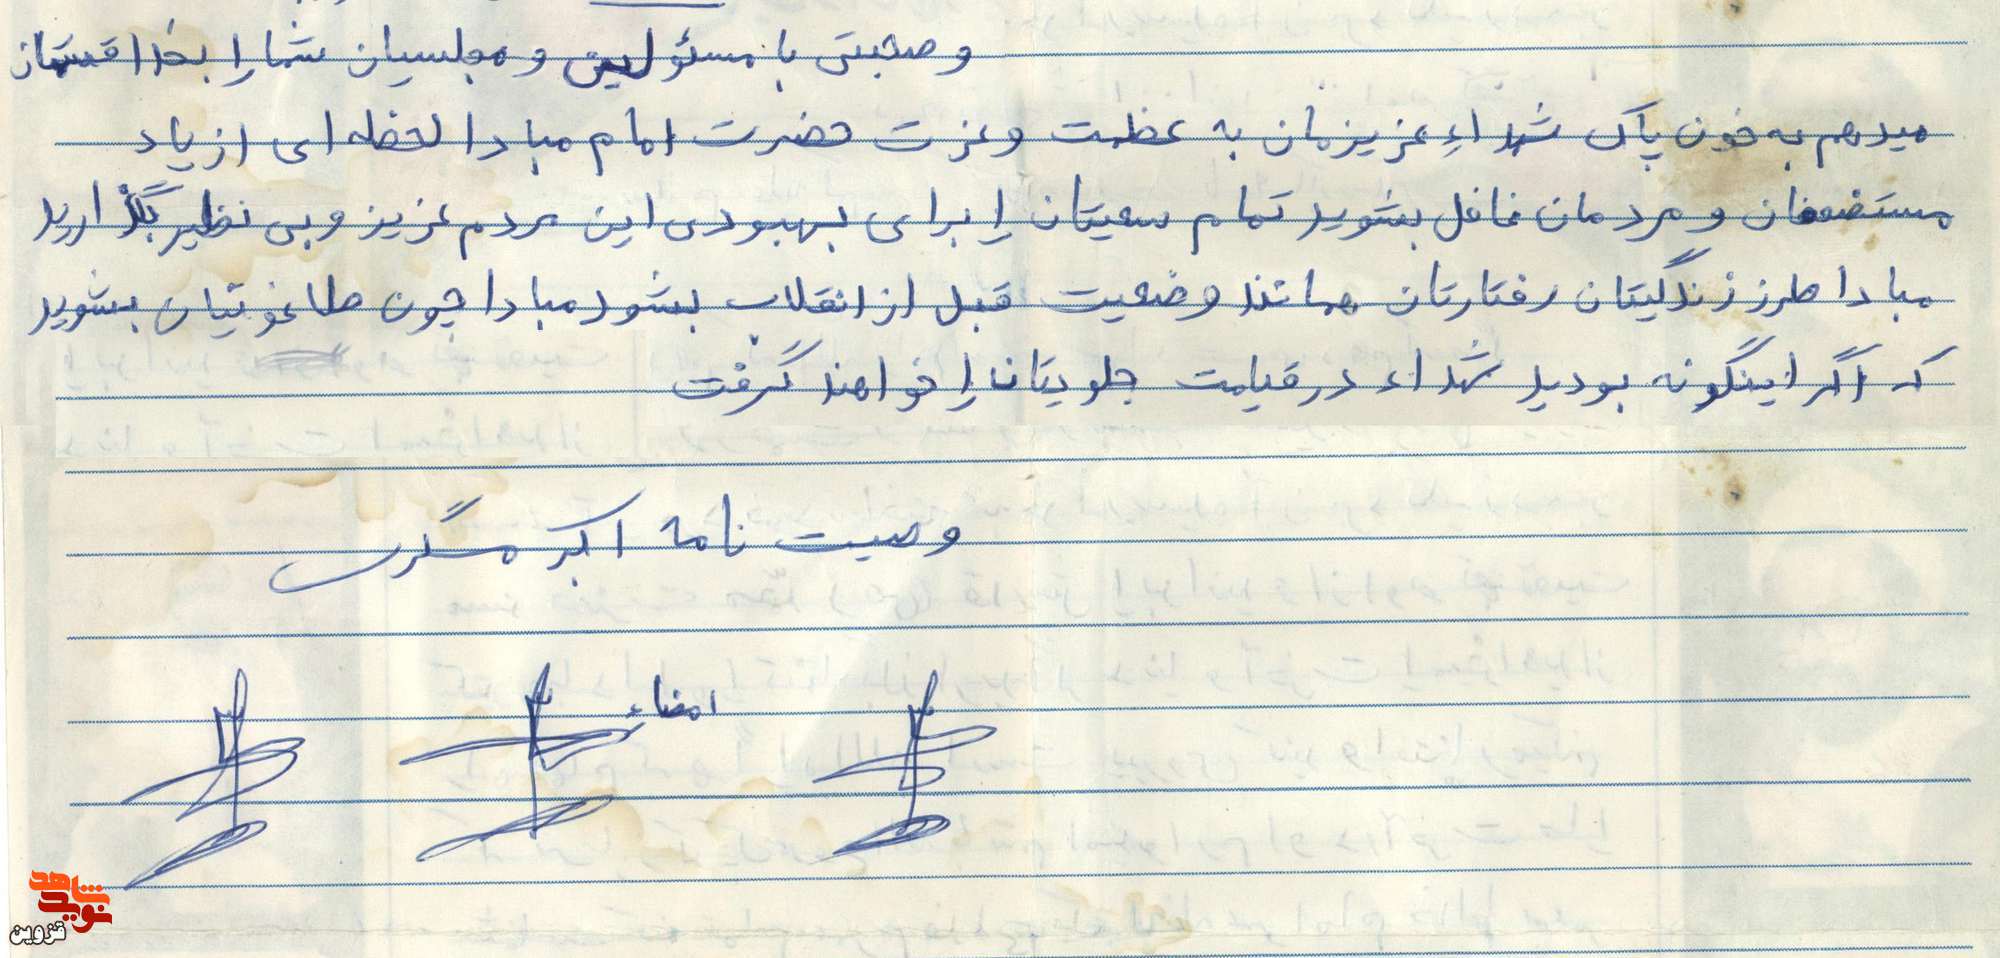 و صحبتی با مسئولین و مجلسیان شما را بخدا قسمتان
میدهم به خون پاک شهداء عزیزمان به عظمت و عزت حضرت امام مبادا لحظه ای از یاد
مستضعفان و مردمان غافل بشوید تمام سعیتان را برای بهبودی این مردم عزیز و بی نظیر بگذارید
مبادا طرز زندگیتان رفتارتان همانند وضعیت قبل از انقلاب بشود مبادا چون طاغوتیان بشوید
که اگر اینگونه بودید شهداء در قیامت جلویتان را خواهند گرفت
وصیت نامه اکبر مسگری
امضاء
نوید شاهد
قزوین